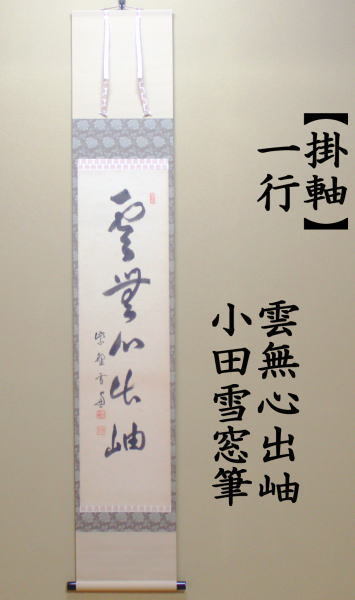 【掛軸】
一行
雲無心出岫
小田雪窓筆
雲無心出岫